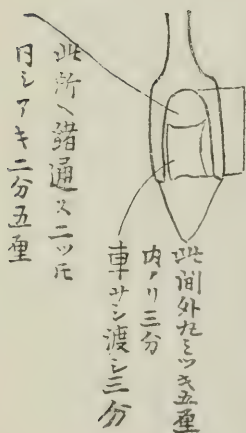 此間外九ミツキ五厘
内ノリ三分
車サシ渡シ三分
此所ヘ緒通ス二ツ托
口シアキ二分五厘